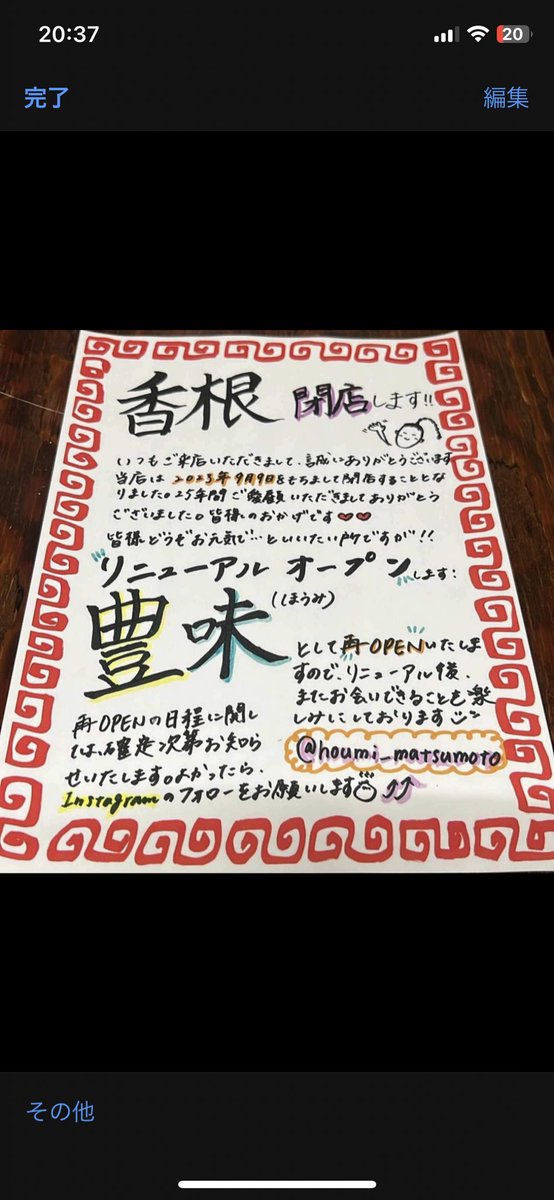 20:37
20
完了
編集
香根 閉店します!!
いつもご来店いただきまして、誠にありがとうございます
当店は2023年9月9日をもちまして閉店することとな
りました。25年間ご愛顧いただきましてありがとう
ございました。皆様のおかげです
皆様どうぞお元気で…といいたい所ですが!!
リニューアル オープンします!
豊味(ほうみ)
として再OPENいたしま
すので、リニューアル後、
またお会いできることを楽
しみにしております
@houmi_matsumoto
再OPENの日程に関し
ては、確定次第お知ら
せいたします。よかったら、
Instagramのフォローをお願いします
その他